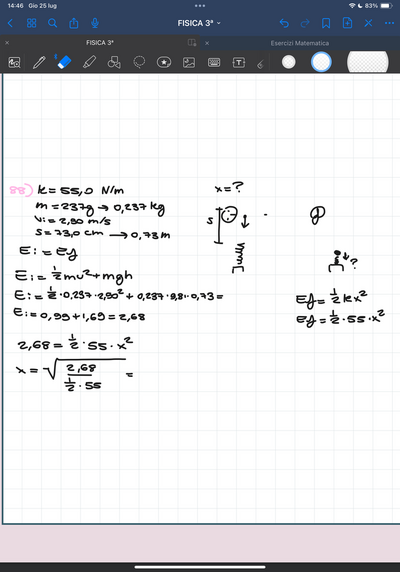 14:46 Gio 25 lug
83%
FISICA 3ª
FISICA 3ª
Esercizi Matematica
88) k = 55,0 N/m
x = ?
m = 237g → 0,237 kg
vi = 2,90 m/s
s
s = 73,0 cm → 0,73 m
Ei = Ef
?
Ei = 1/2 mv² + mgh
Ei = 1/2 · 0,237 · 2,90² + 0,237 · 9,81 · 0,73 =
Ef = 1/2 kx²
Ei = 0,99 + 1,69 = 2,68
Ef = 1/2 · 55 · x²
2,68 = 1/2 · 55 · x²
x = √ 2,68 / 1/2 · 55 =